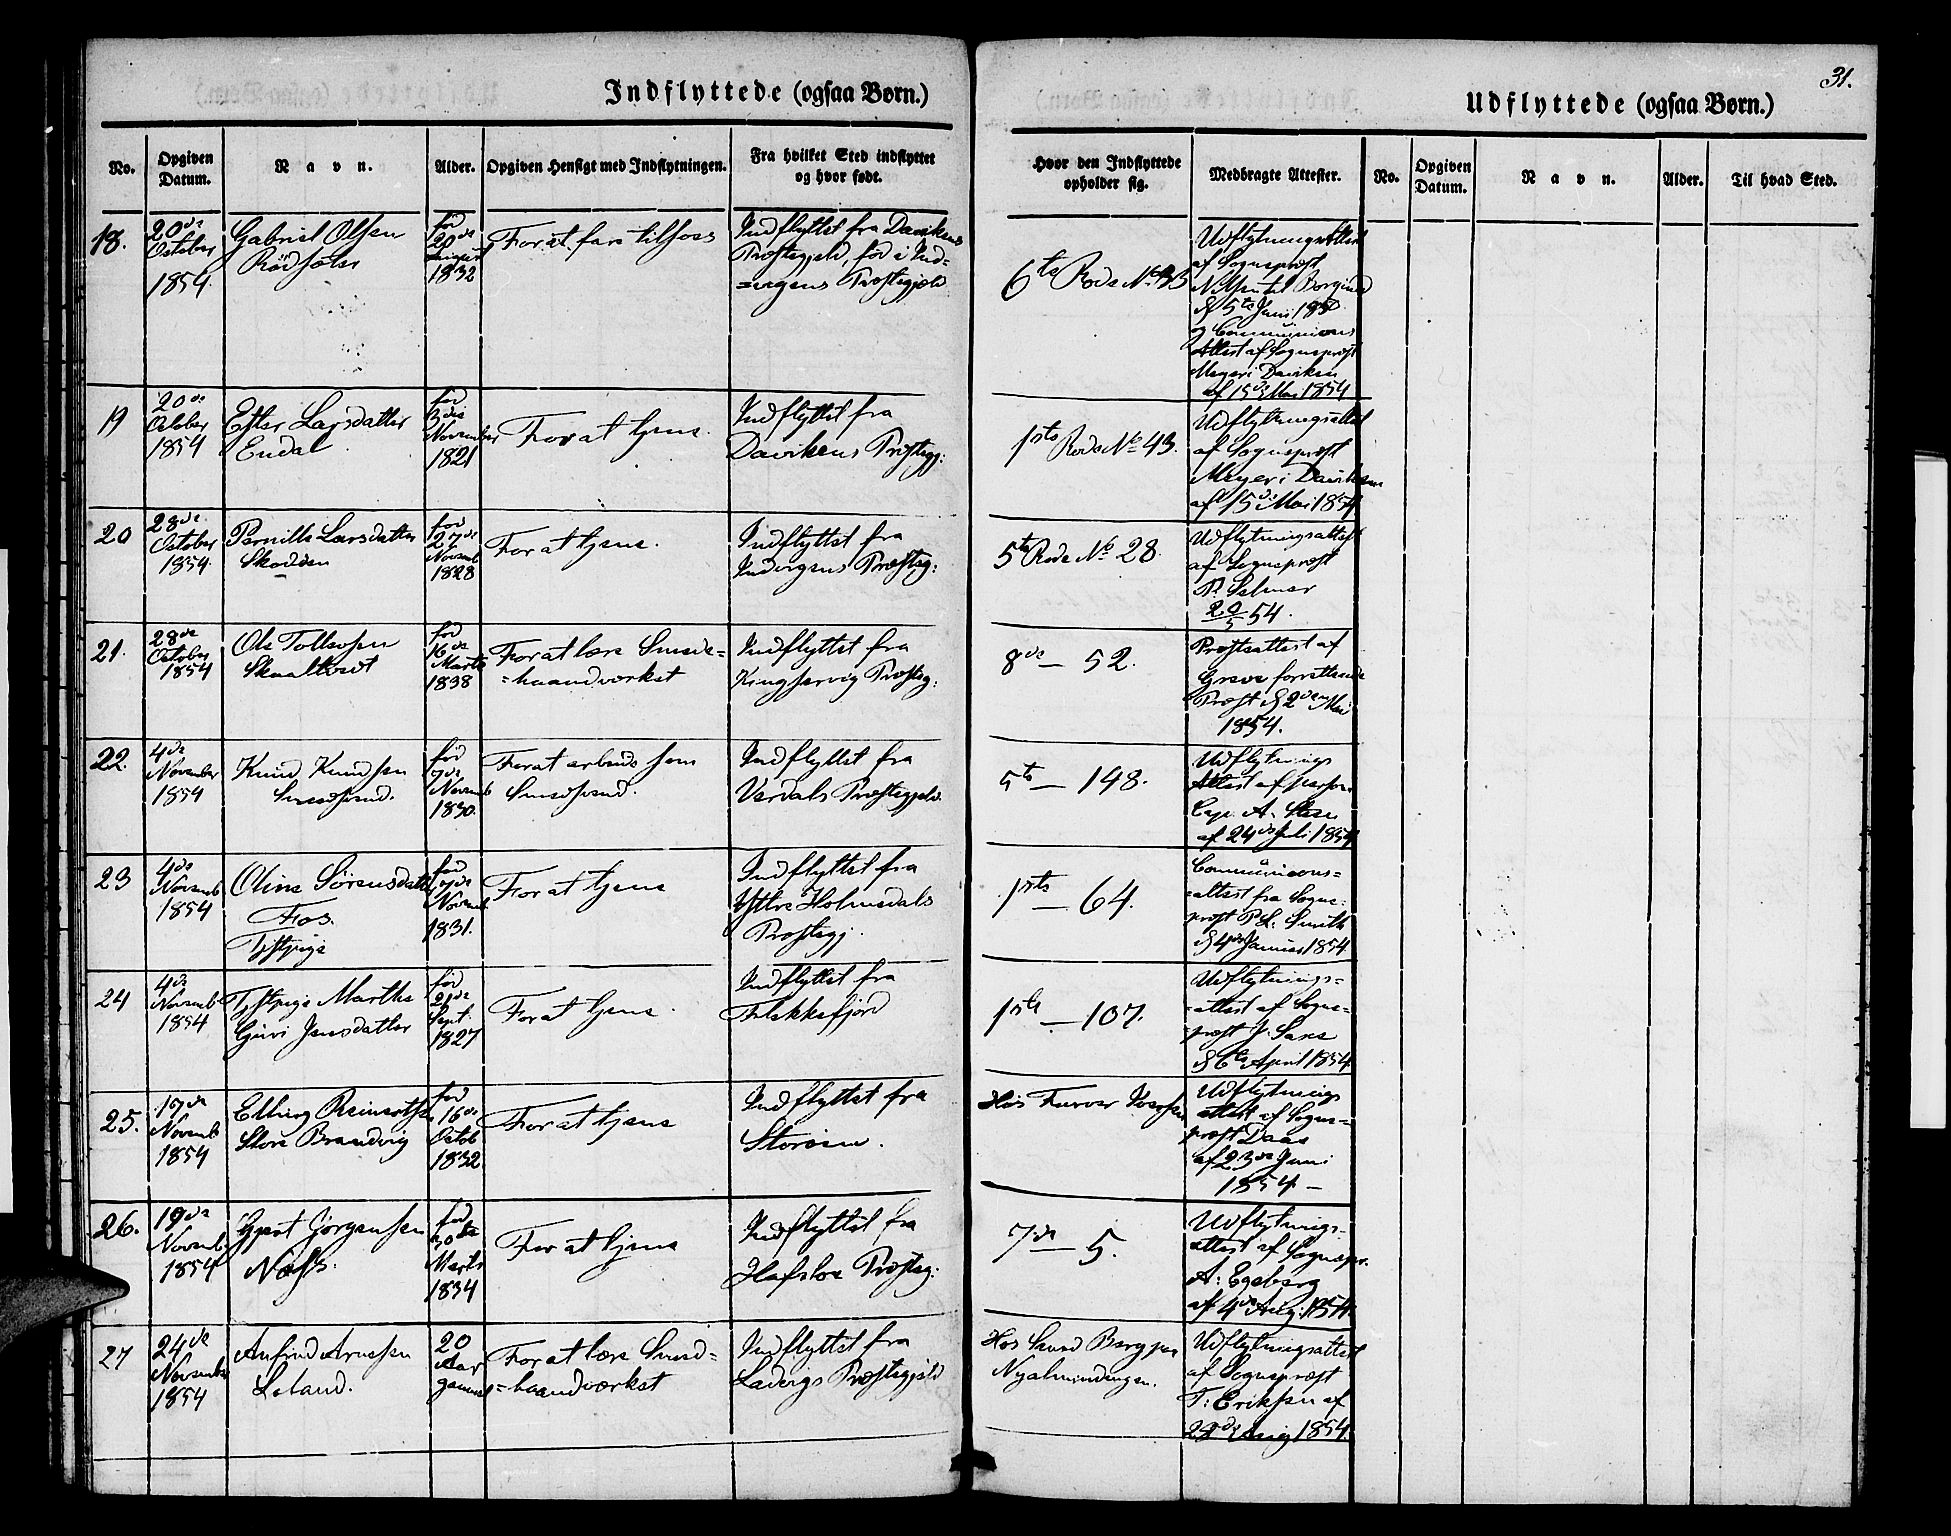 31.
Indflyttede (ogsaa Børn.)
Udflyttede (ogsaa Børn.)
No.
Opgiven Datum.
Navn.
Alder.
Opgiven Hensigt med Indflytningen.
Fra hvilket Sted indflyttet og hvor født.
Hvor den Indflyttede opholder sig.
Medbragte Attester.
No.
Opgiven Datum.
Navn.
Alder.
Til hvad Sted.
18.
20de
October
1854.
Gabriel Olsen
født
20de
August
1832
For at fare tilsøes
Indflyttet fra Davikens
Præstegjeld, fød i Ind=
=vigens Præstegjeld
6te Rode No
Udflytningsattest
af Sognepræst
5te Juni 18
og Communions
Attest af Sognepræst
Meyer i Daviken
af 15de Mai 1854
19
20de
October
1854
Ester Larsdatter
Endal
fød
3die
November
1821
For at tjene.
Indflyttet fra
Davikens Præstegj:
1ste Rode No 43.
Udflytningsattest
af Sognepræst
Meyer i Daviken
af 15de Mai 1854
20
28de
October
1854.
Pernille Larsdatter
Skodden
fød
27de
Novemb
1828
For at tjene.
Indflyttet fra
Indvigens Præsteg:
5te Rode No 28.
Udflytningsattest
af Sognepræst
P. Selmer
20/5 54.
21.
28de
October
1854
Ole Tollevsen
fød
16de
Marts
1838
For at lære Smede=
=haandværket
Indflyttet fra
Kingservig Præsteg:
8de — 52.
Præsteattest af
Greve forrettende
Præst d 2den Mai
1854.
22.
4de
November
1854
Knud Knudsen
Smedsvend.
fød
7de
Novemb
1830.
For at arbeide som
Smedsvend.
Indflyttet fra
Værdals Præstegjeld.
5te — 148.
Udflytnings
Attest af person.
Cap. A.
af 24de Juli 1854
23
4de
Novemb
1854
Oline Sørensdatter
Fos.
Tjstpige
fød
7de
Novemb.
1831.
For at tjene
Indflyttet fra
Yttre Holmedals
Præstegj.
1ste — 64.
Communions=
=attest fra Sogne-
præst P. L. Smith
d 4de Januar 1854.
24
4de
Novemb
1854
Tjstpige Marthe
Guri Jensdatter
fød
21de
Sept.
1827
For at tjene.
Indflyttet fra
Flekkefjord
1ste — 107.
Udflytnings=
=attest af Sogne=
præst J.
d 6te April 1854
25.
17de
Novemb
1854
Elling
Store Brandvig
fød
16de
Octob
1832
For at tjene
Indflyttet fra
Storøen.
Hos Farver Iversen
Udflytnings
attest af Sogne=
præst Daae
af 23de Juni
1854 —
26.
19de
Novemb.
1854
Gjert Jørgensen
Næss.
fød
30te
Marts
1834
For at tjene
Indflyttet fra
Hafsloe Præsteg:
7de — 5.
Udflytnings-
attest af Sognepr.
A: Egeberg
af 4de Aug: 1854.
27
24de
November
1854
Anfind Arnesen
Leland.
20
Aar
gammel
For at lære Smed=
=haandværket
Indflyttet fra
Ladvigs Præstegjeld
Hos Smed Bergsen
Nyalmindingen.
Udflytningsattest
af Sognepræst
T: Eriksen af
28de Aug 1854.